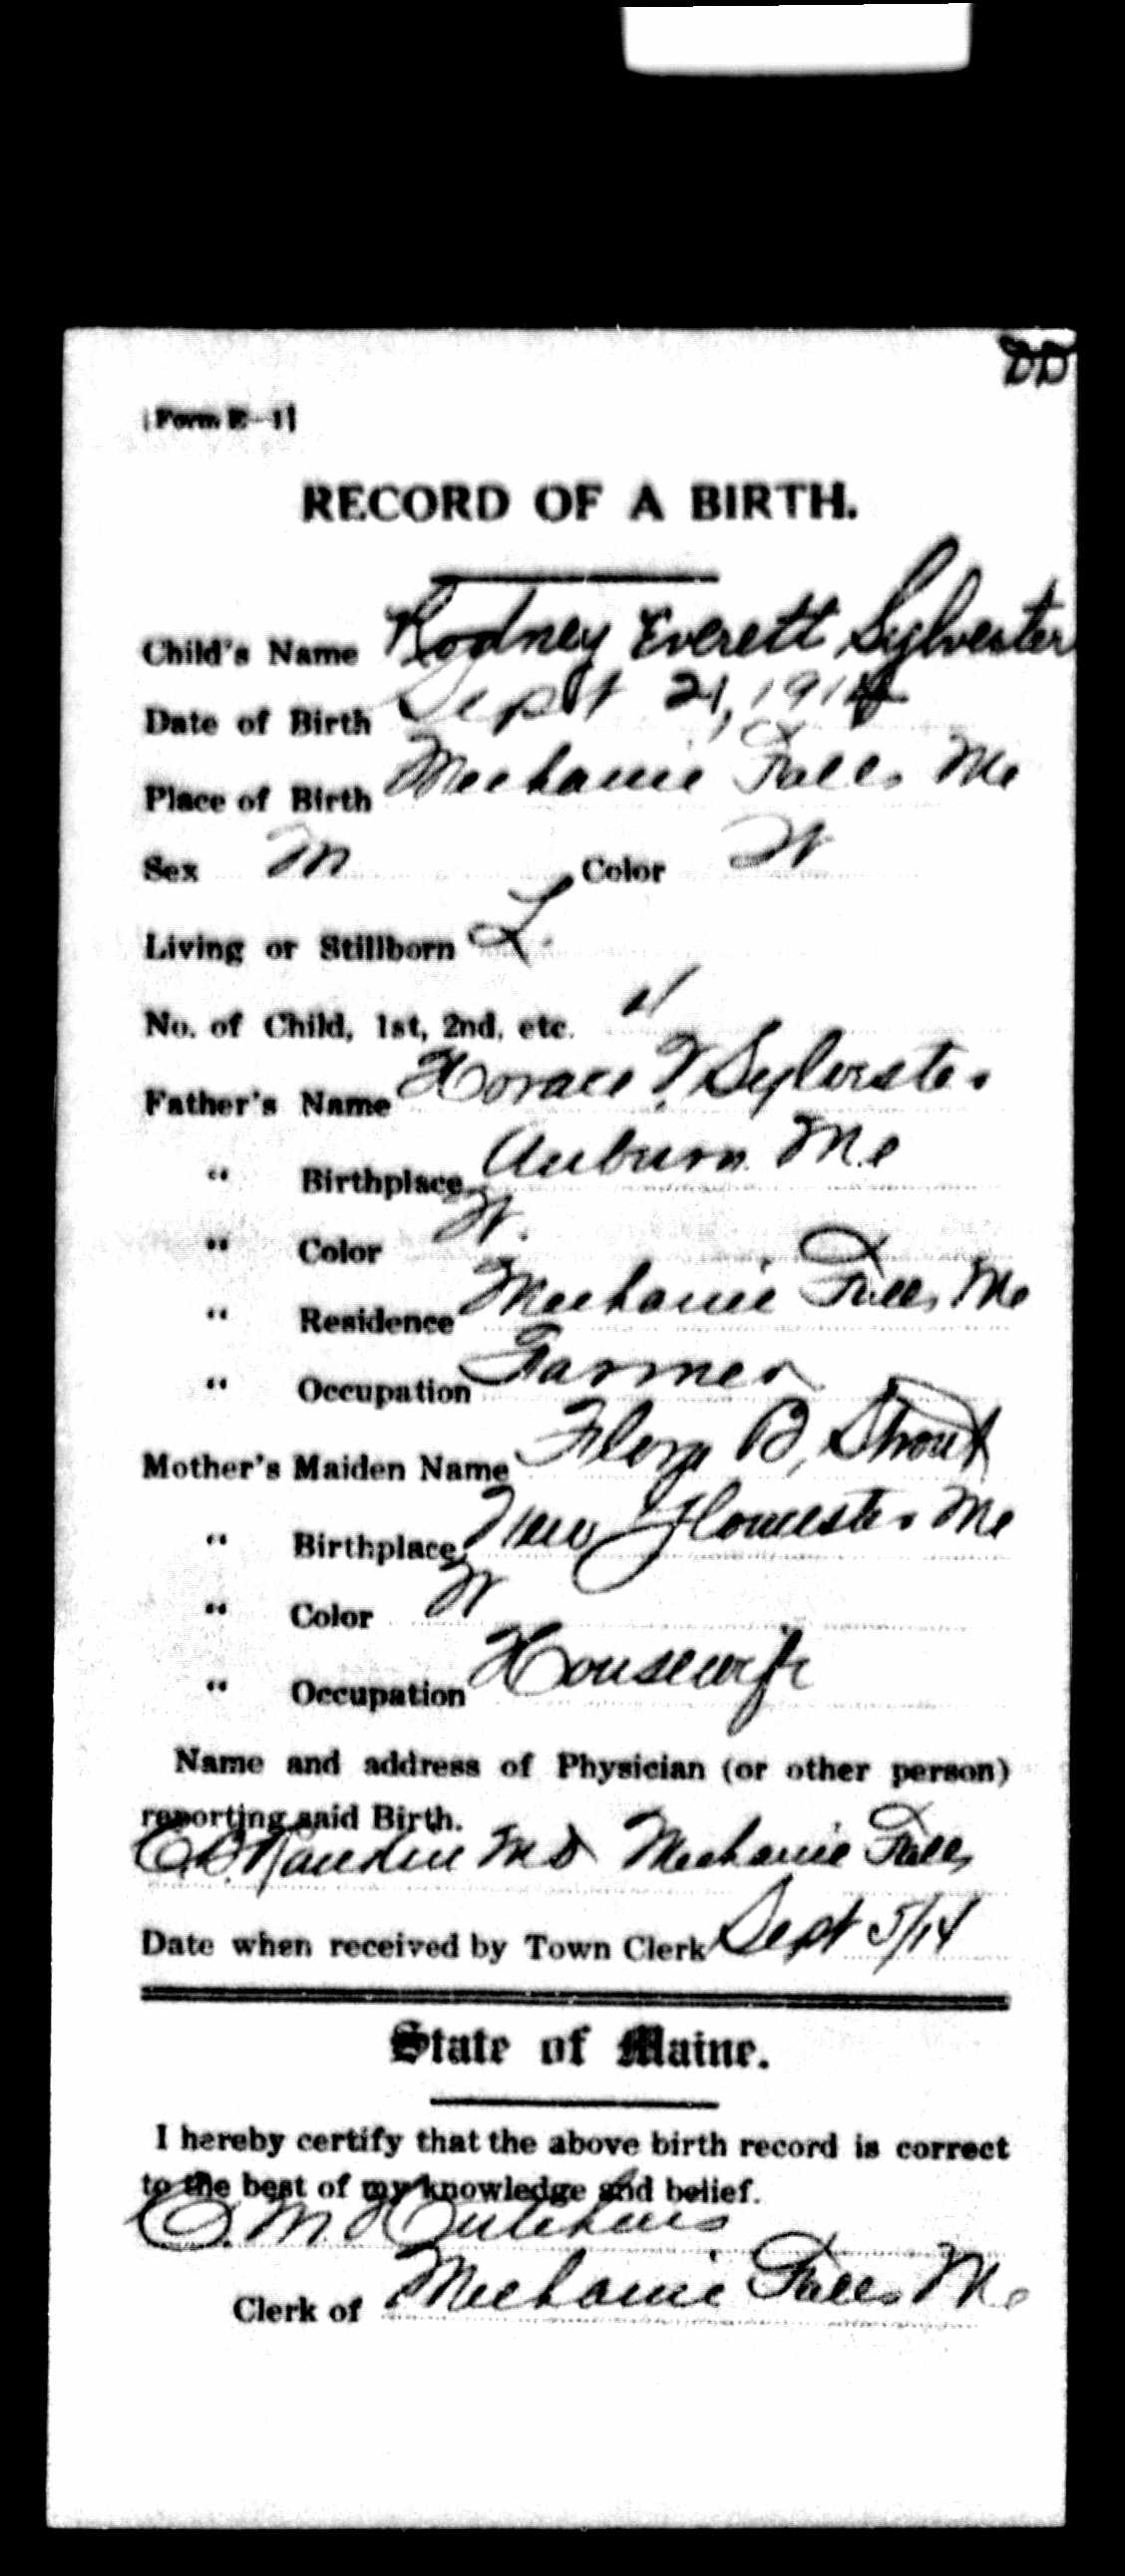 DD
[Form E—1]
RECORD OF A BIRTH.
Child's Name Rodney Everett Sylvester
Date of Birth Sept 21, 1914
Place of Birth Mechanic Falls Me
Sex M Color W
Living or Stillborn L.
No. of Child, 1st, 2nd, etc.
Father's Name Horace Sylvester
“ Birthplace Auburn Me
“ Color W.
“ Residence Mechanic Falls, Me
“ Occupation Farmer
Mother's Maiden Name Flora B. Strout
“ Birthplace New Gloucester Me
“ Color W
“ Occupation Housewife
Name and address of Physician (or other person)
reporting said Birth.
M D Mechanic Falls
Date when received by Town Clerk Sept 5/14
State of Maine.
I hereby certify that the above birth record is correct
to the best of my knowledge and belief.
M. Hutchins
Clerk of Mechanic Falls Me